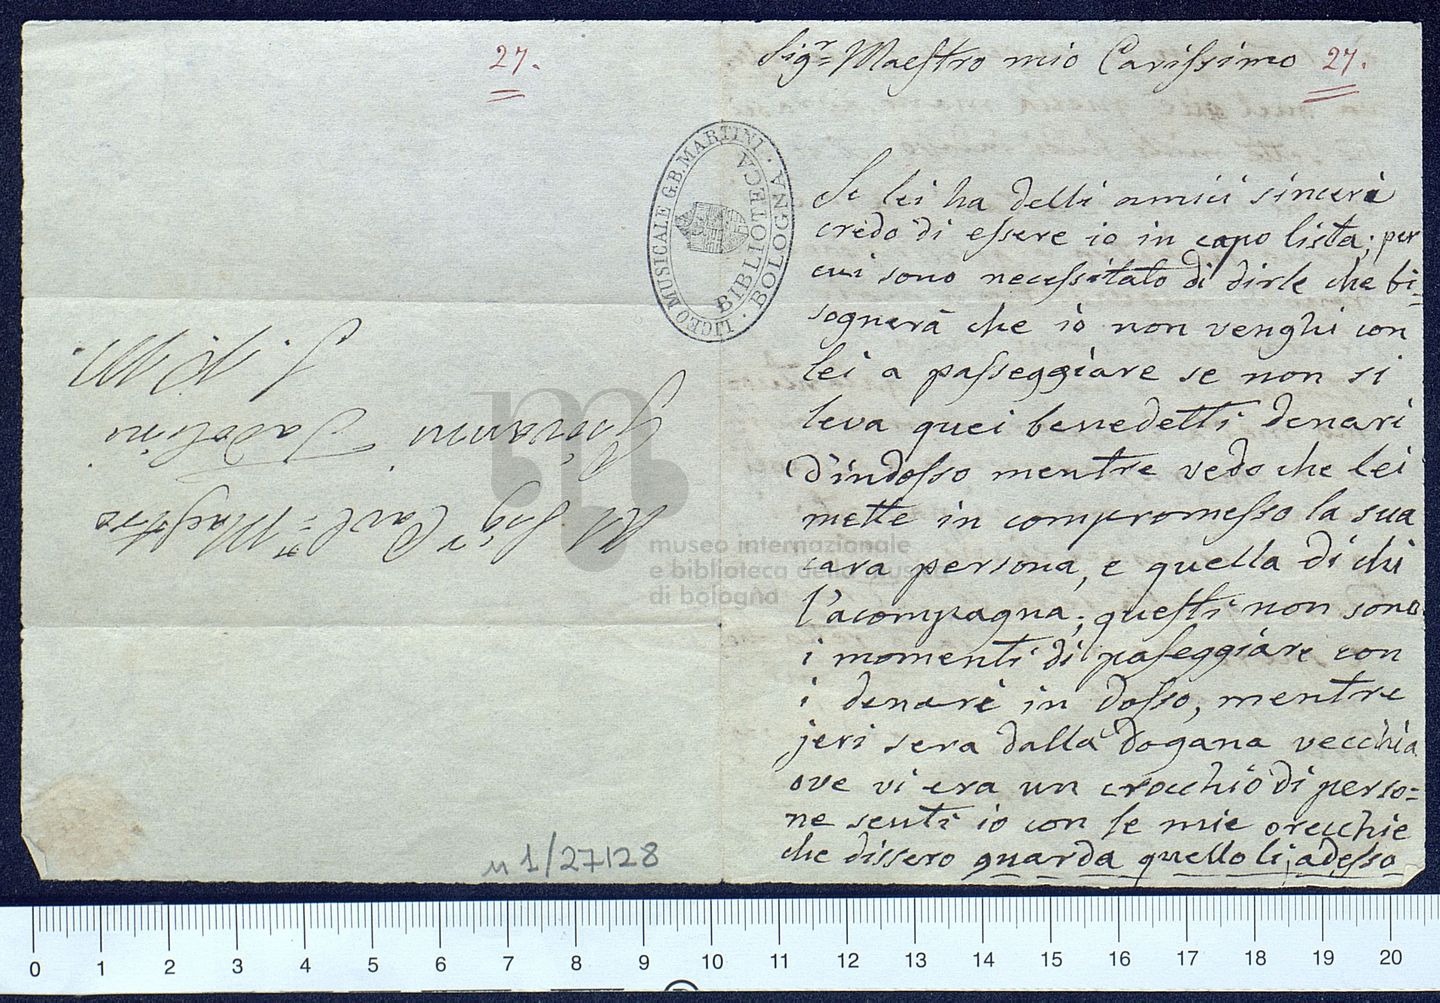 27.
LICEO MUSICALE G.B. MARTINI · BOLOGNA ·
BIBLIOTECA
Al Sigr Carmo Maestro
Giovanni Tadolini
S. R. M.
museo internazionale
e biblioteca della musica
di bologna
n 1/27128
Sigr Maestro mio Carissimo 27.
Se lei ha delli amici sinceri
credo di essere io in capo lista; per
cui sono necessitato di dirle che bi=
sognerà che io non venghi con
lei a passeggiare se non si
leva quei benedetti denari
d'indosso mentre vedo che lei
mette in compromesso la sua
cara persona, e quella di chi
l'acompagna; questi non sono
i momenti di paseggiare con
i denari in dosso, mentre
jeri sera dalla dogana vecchia
ove vi era un crocchio di perso=
ne senti io con le mie orecchie
che dissero guarda quello li, adesso
0 1 2 3 4 5 6 7 8 9 10 11 12 13 14 15 16 17 18 19 20